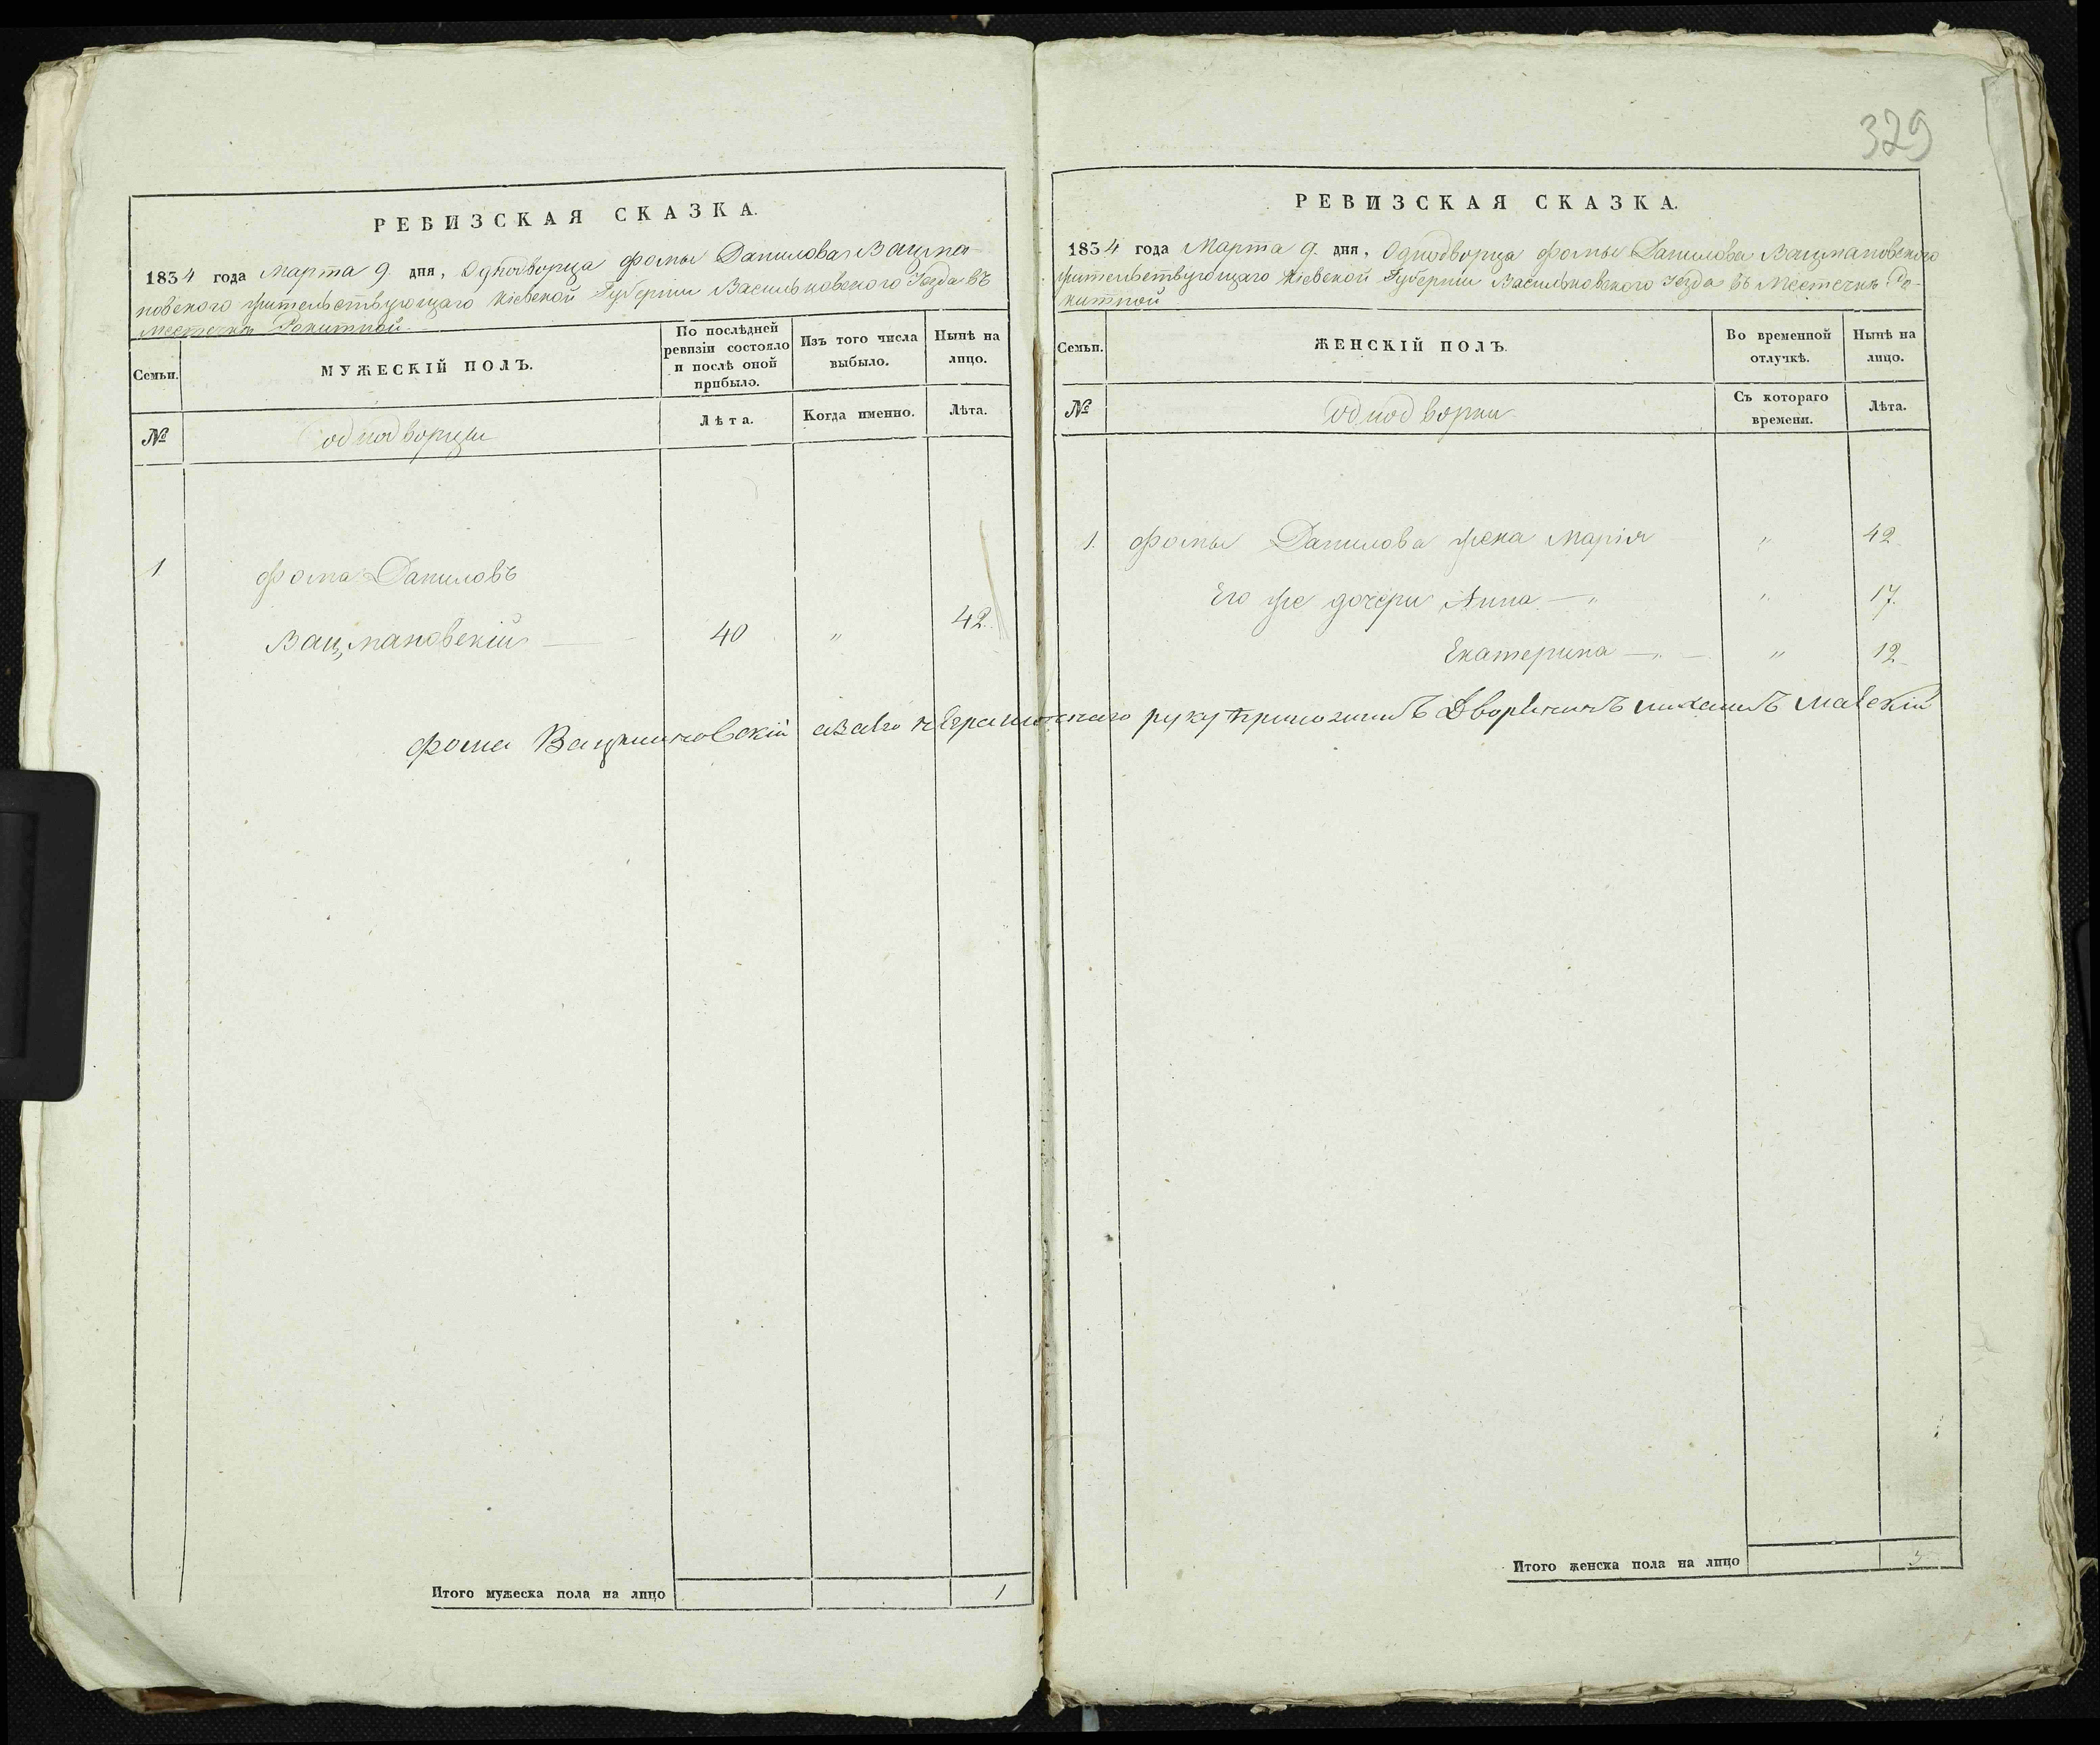 329
РЕВИЗСКАЯ СКАЗКА.
1834 года Марта 9. дня, Однодворца Фомы Данилова Вацма-
новского жительствующаго Кіевской Губерніи Васильковского Уезда въ
местечкѣ Рокитной.
Семьи.
МУЖЕСКІЙ ПОЛЪ.
По послѣдней ревизіи состояло и послѣ оной прибыло.
Изъ того числа выбыло.
Нынѣ на лицо.
№
однодворцы
Лѣта.
Когда именно.
Лѣта.
1 Фома Даниловъ
Вацмановскій — 40 " 42.
Итого мужеска пола на лицо 1
РЕВИЗСКАЯ СКАЗКА.
1834 года Марта 9. дня, Однодворца Фомы Данилова Вацмановского
жительствующаго Кіевской Губерніи Васильковского Уезда въ Местечкѣ Ро-
китной
Семьи.
ЖЕНСКІЙ ПОЛЪ.
Во временной отлучкѣ.
Нынѣ на лицо.
№
однодворки
Съ котораго времени.
Лѣта.
1. Фомы Данилова жена Марія " 42
Его же дочери Анна —" " 17.
Екатерина —"— " 12
Фома Вацмановскій азаего неграмотнаго руку приложилъ Дворенинъ
Итого женска пола на лицо 3